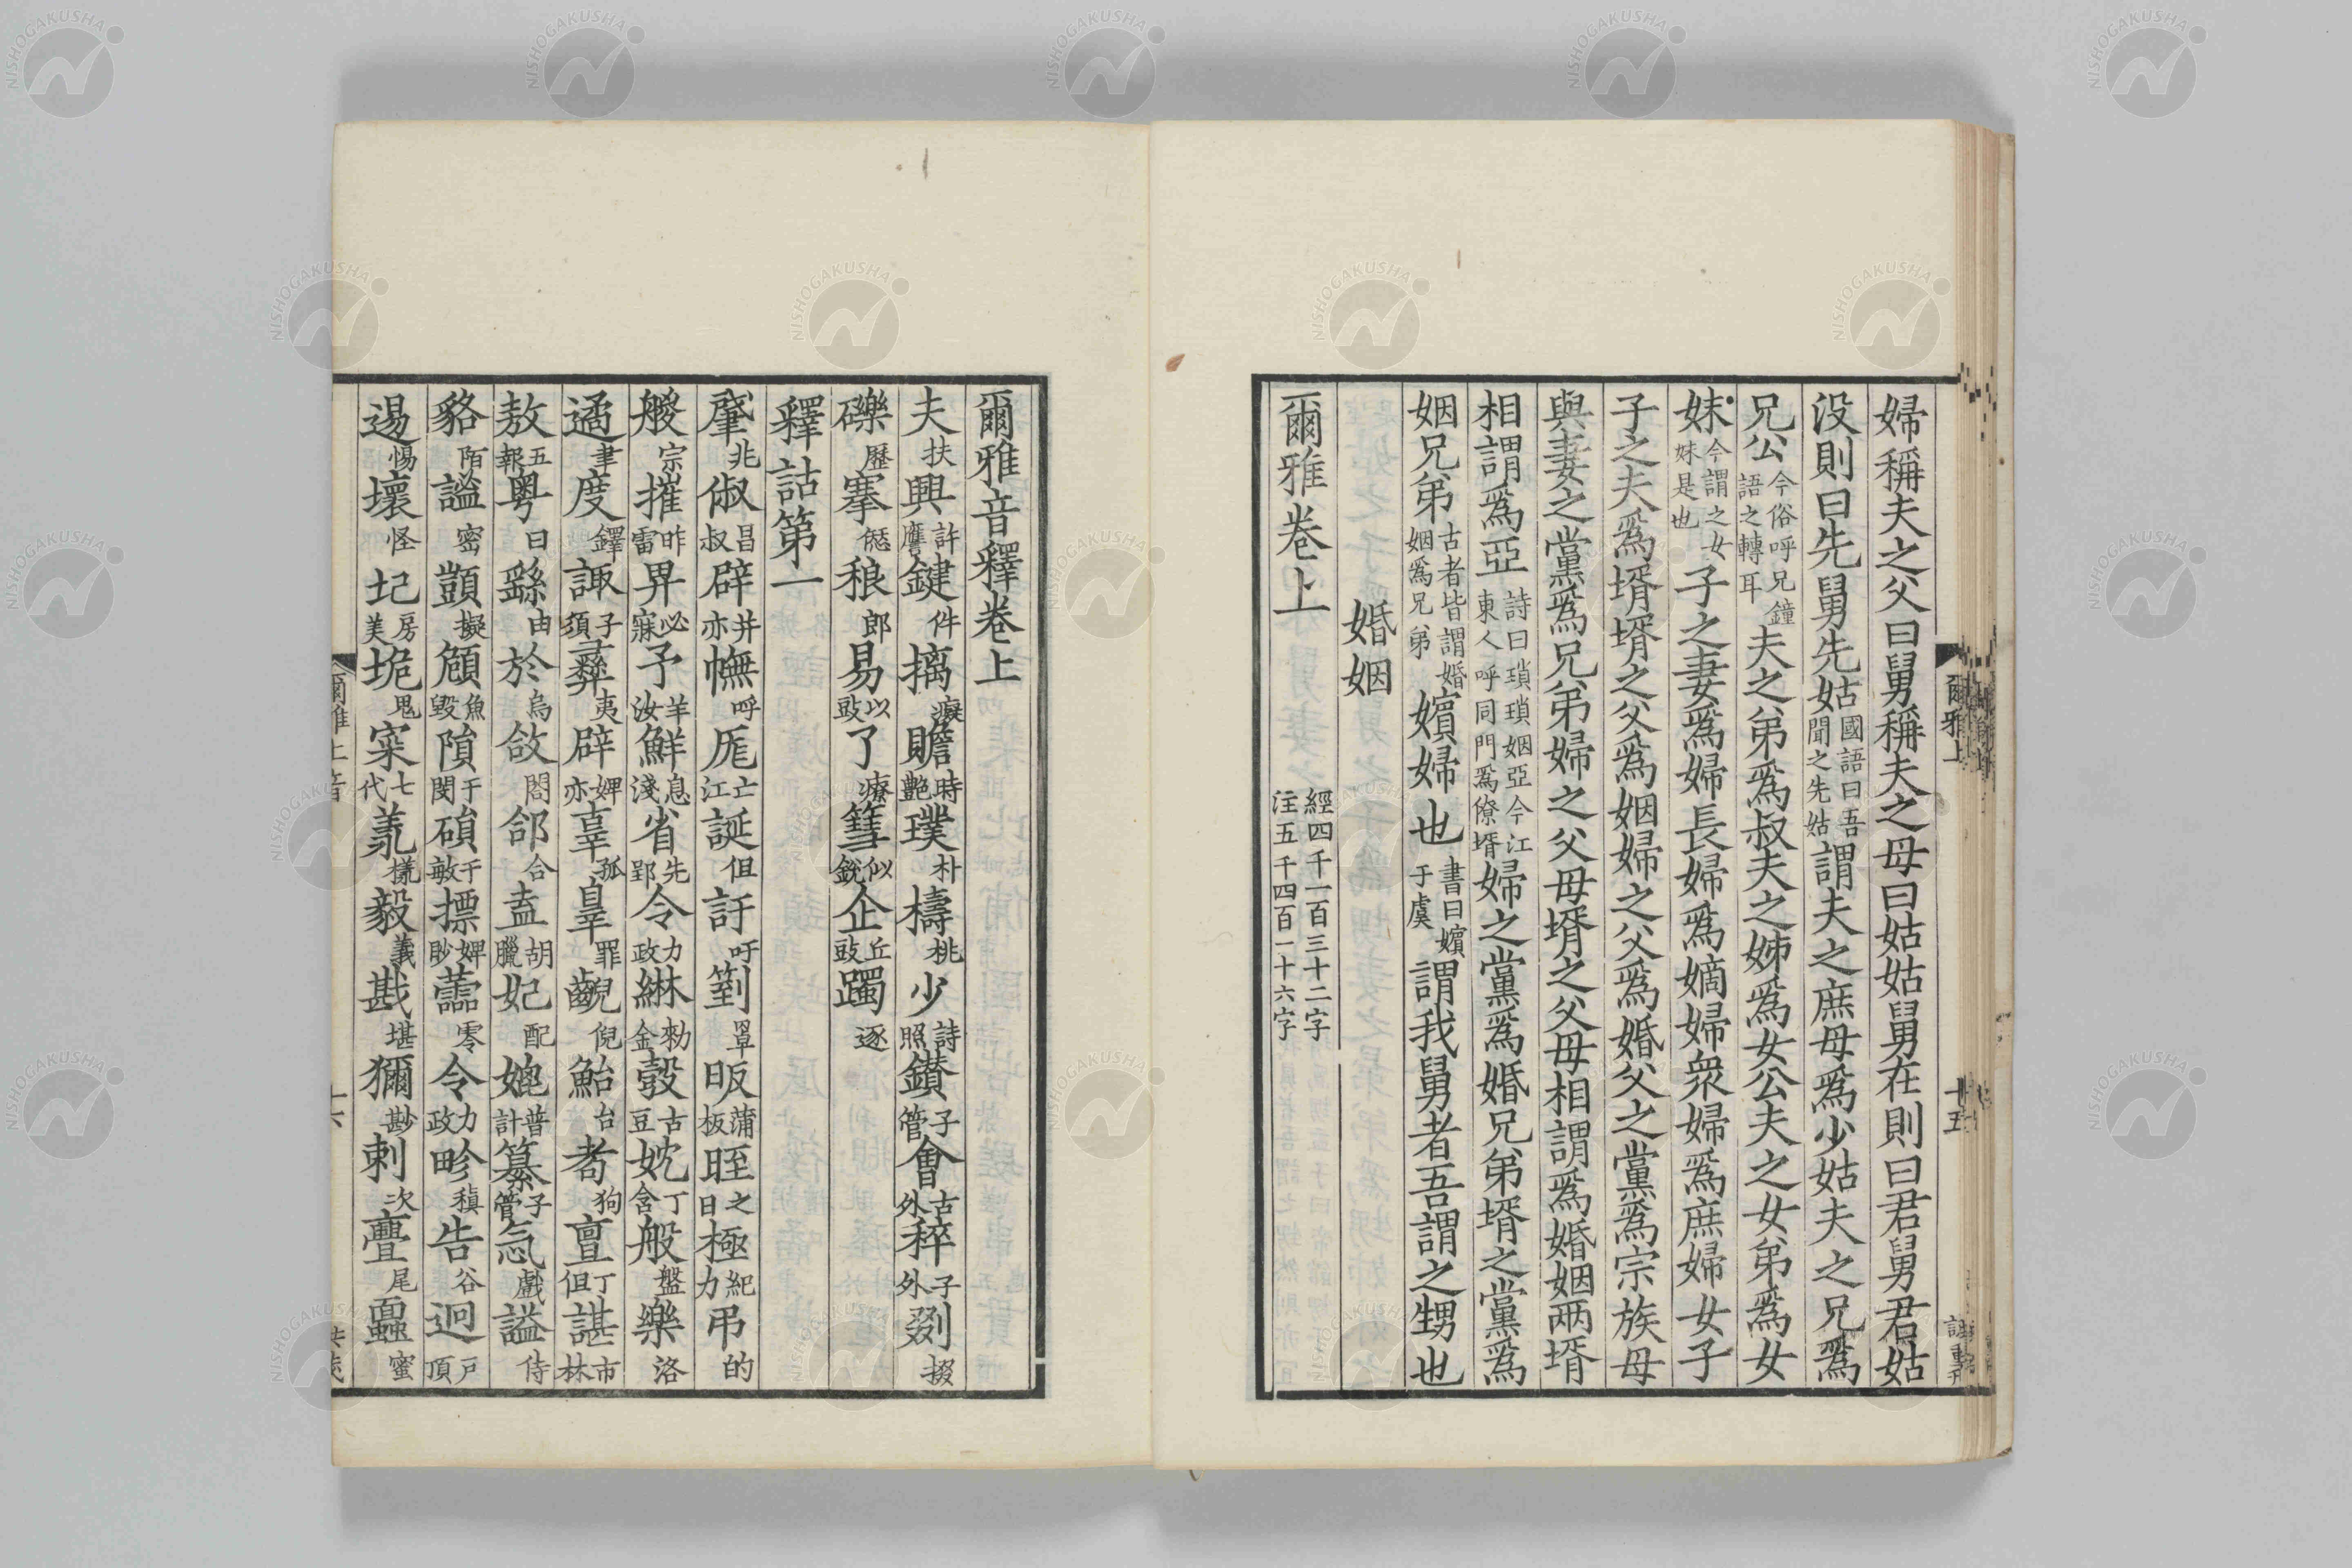 婦稱夫之父曰舅稱夫之母曰姑姑舅在則曰君舅君姑
没則曰先舅先姑國語曰吾聞之先姑謂夫之庶母爲少姑夫之兄爲
兄公今俗呼兄鐘語之轉耳夫之弟爲叔夫之姊爲女公夫之女弟爲女
妹今謂之女妹是也子之妻爲婦長婦爲嫡婦衆婦爲庶婦女子
子之夫爲壻壻之父爲姻婦之父爲婚父之黨爲宗族母
與妻之黨爲兄弟婦之父母壻之父母相謂爲婚姻兩壻
相謂爲亞詩曰瑣瑣姻亞今江東人呼同門爲僚壻婦之黨爲婚兄弟壻之黨爲
姻兄弟古者皆謂婚姻爲兄弟嬪婦也書曰嬪于虞謂我舅者吾謂之甥也
婚姻
爾雅卷上 經四千一百三十二字注五千四百一十六字
爾雅上
十五
爾雅音釋卷上
夫扶興許譍鍵件摛癡贍時艷璞朴檮桃少詩照鑽子管會古外稡子外剟掇
礫歷搴愆稂郎易以豉了療篲似銳企丘豉躅逐
釋詁第一
肇兆俶昌叔辟并亦幠呼厖亡江誕但訏吁箌罩昄蒲板晊之日極紀力弔的
艐宗摧昨雷畀必寐予羊汝鮮息淺省先郢令力政綝勑金彀古豆妉丁含般盤樂洛
遹聿度鐸諏子須彝夷辟婢亦辜孤辠罪齯倪鮐台耇狗亶丁但諶市林
敖五報粤曰繇由於烏敆閤郃合盍胡臘妃配媲普計纂子管忥戲謚侍
貉陌謐密顗擬頠魚毀隕于閔磒于敏摽婢眇蘦零令力政畛稹告谷迥戸頂
逷惕壞怪圮房美垝鬼寀七代羕樣毅義戡堪獮尠刺次亹尾蠠蜜
爾雅上音
十六
NISHOGAKUSHA